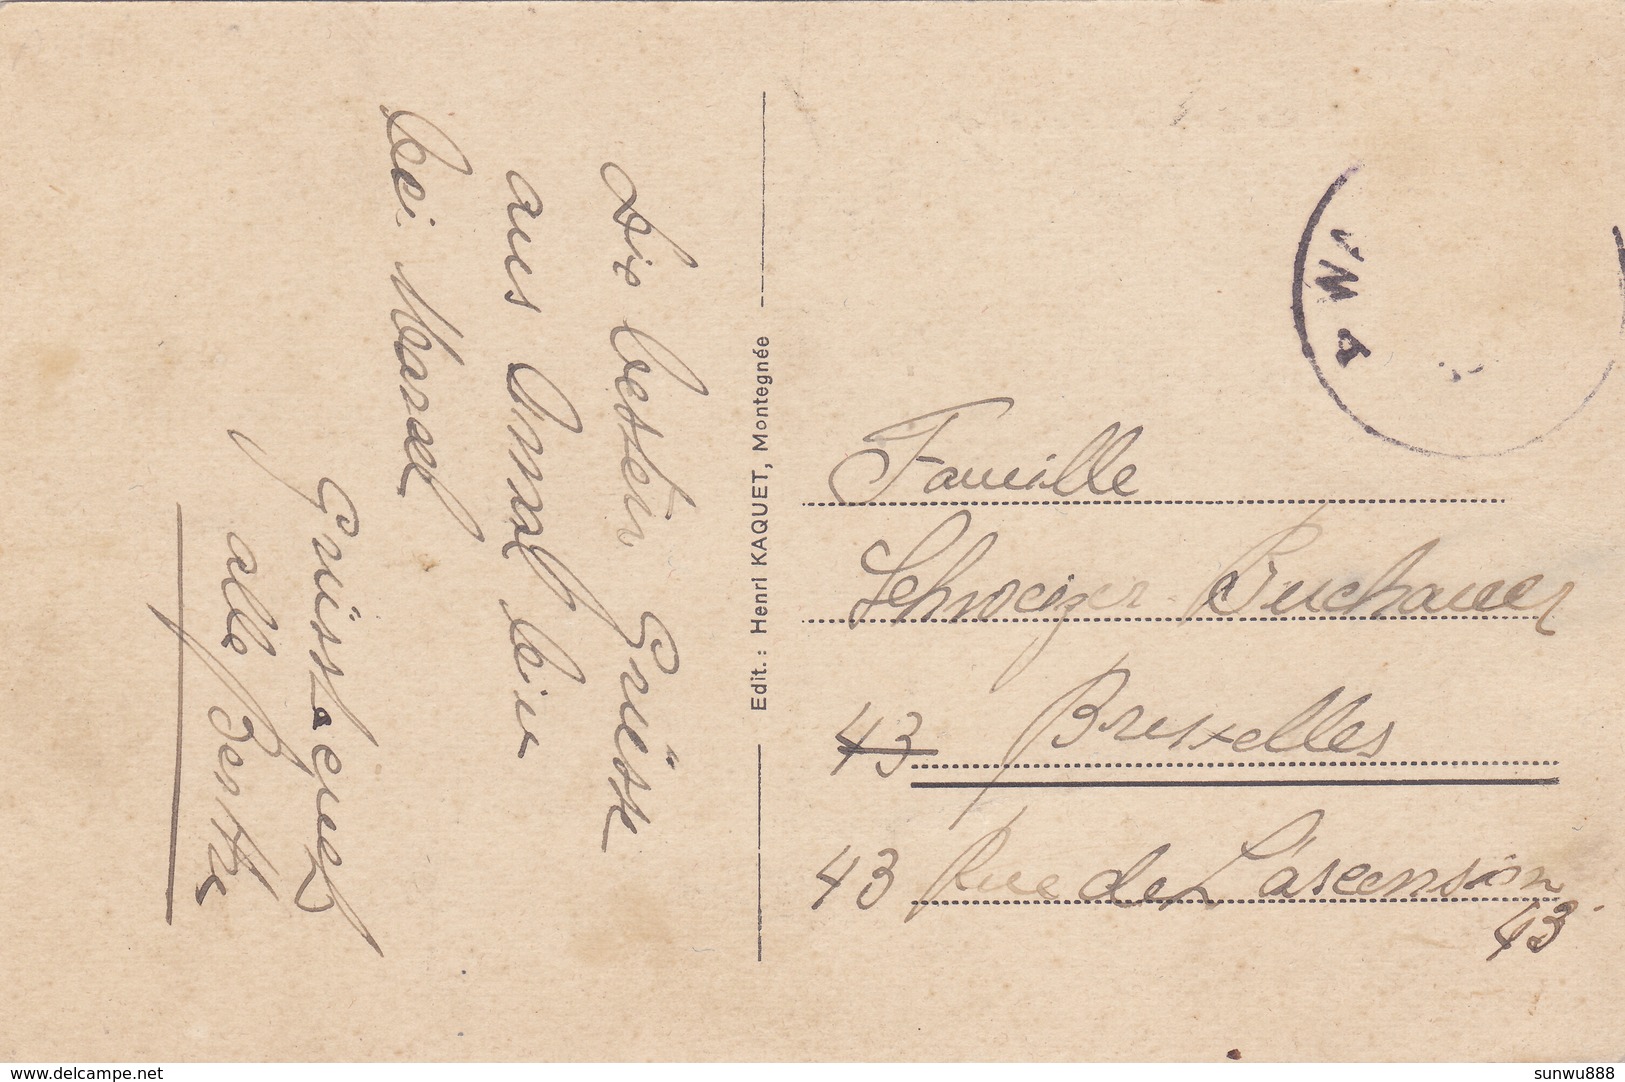 Die besten Grüsse
aus Omal bin
bei Marcel
Grüsst euch
alle Berthe
Edit.: Henri KAQUET, Montegnée
Famille
Schweizer-Buchauer
43 Bruxelles
43 Rue de L'ascension
43
WA
delcampe.net
sunwu888